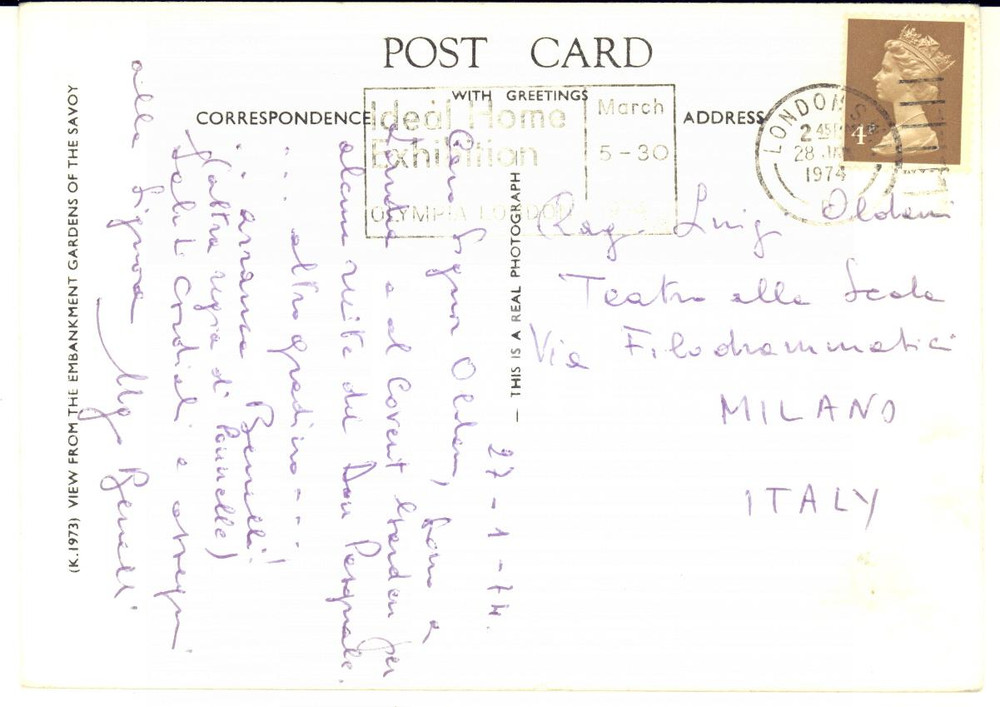 POST CARD
WITH GREETINGS
CORRESPONDENCE
ADDRESS
Ideal Home
Exhibition
OLYMPIA LONDON
March
5-30
LONDON S
2 45
28 JAN
1974
4P
(K.1973) VIEW FROM THE EMBANKMENT GARDENS OF THE SAVOY
— THIS IS A REAL PHOTOGRAPH —
27-1-74.
Caro Signor Oldani, sono a
Londra e al Covent Garden per
alcune recite del Don Pasquale.
... altro gradino ...
.. arranca Benelli!
(l'altra regia di Ponnelle)
Saluti cordiali e ossequi
alla Signora Ugo Benelli
Rag. Luigi Oldani
Teatro alla Scala
Via Filodrammatici
MILANO
ITALY